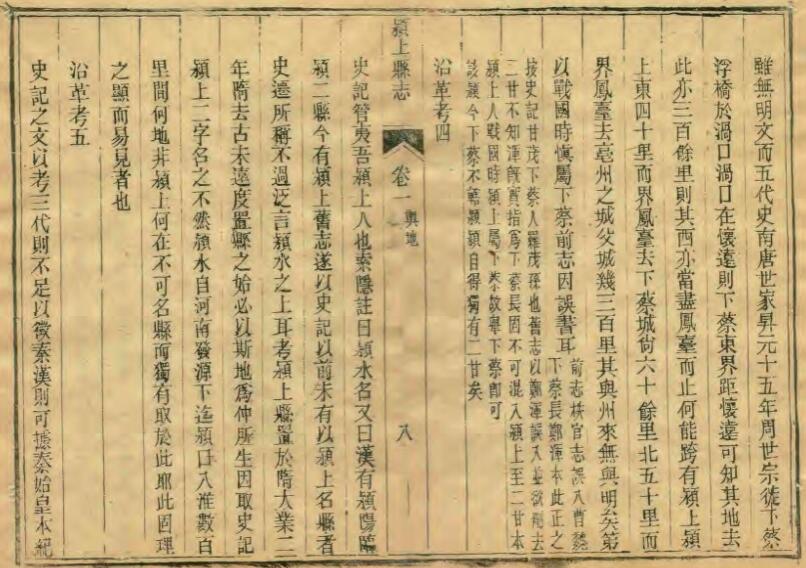 雖無明文而五代史南唐世家昇元十五年周世宗徙下蔡
浮橋於渦口渦口在懷遠則下蔡東界距懷遠可知其地去
此亦三百餘里則其西亦當盡鳳臺而止何能跨有潁上潁
上東四十里而界鳳臺去下蔡城尙六十餘里北五十里而
界鳳臺去亳州之城父城幾三百里其與州來無與明矣第
以戰國時愼屬下蔡前志因誤書耳
前志秩官志誤入曹魏
下蔡長鄭渾本此正之
按史記甘茂下蔡人羅茂孫也舊志以鄭渾誤入並欲刪去
二甘不知渾旣實指爲下蔡長固不可混入潁上至二甘本
潁上人戰國時潁上屬下蔡故舉下蔡卽可
該潁今下蔡不隸潁潁自得獨有二甘矣
沿革考四
潁上縣志
卷一
輿地
八
史記管夷吾潁上人也索隱註曰潁水名又曰漢有潁陽臨
潁二縣今有潁上舊志遂以史記以前未有以潁上名縣者
史遷所稱不過泛言潁水之上耳考潁上縣置於隋大業二
年隋去古未遠度置縣之始必以斯地爲仲所生因取史記
潁上二字名之不然潁水自河南發源下迄潁口入淮數百
里間何地非潁上何在不可名縣而獨有取於此耶此固理
之顯而易見者也
沿革考五
史記之文以考三代則不足以徵秦漢則可據秦始皇本紀